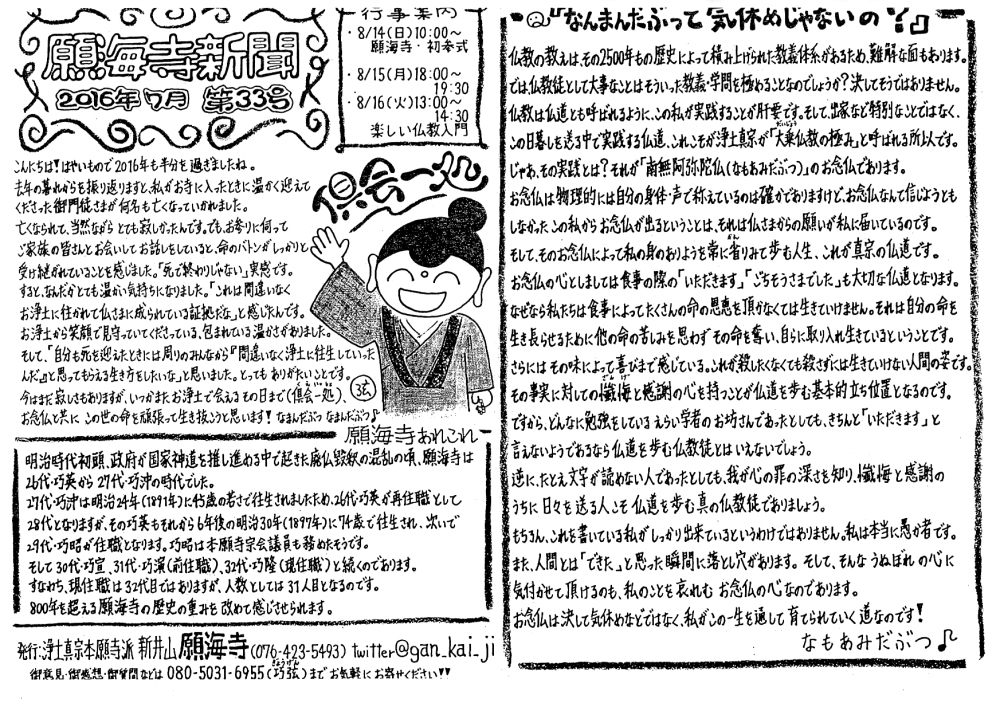 願海寺新聞
2016年7月 第33号
行事案内
・8/14(日)10:00～
願海寺・初参式
・8/15(月)18:00～
19:30
・8/16(火)13:00～
14:30
楽しい仏教入門
こんにちは!はやいもので2016年も半分を過ぎましたね。
去年の暮れからを振り返りますと、私がお寺に入ったときに温かく迎えて
くださった御門徒さまが何名も亡くなっていかれました。
亡くなられて、当然ながらとても寂しかったんです。でも、お参りに伺って
ご家族の皆さんとお会いしてお話しをしていると、命のバトンがしっかりと
受け継がれていることを感じました。「死で終わりじゃない」実感です。
すると、なんだかとても温かい気持ちになりました。「これは間違いなく
お浄土に往かれて仏さまに成られている証拠だな」と感じたんです。
お浄土から笑顔で見守っていてくださっている、包まれている温かさがありました。
そして、「自分も死を迎えたときには周りのみんなから『間違いなく浄土に往生していった
んだ』と思ってもらえる生き方をしたいな」と思いました。とってもありがたいことです。
今はまだ寂しさもありますが、いつかまたお浄土で会えるその日まで(倶会一処)、
お念仏と共にこの世の命を頑張って生き抜こうと思います!なまんだぶつ なまんだぶつ♪
倶会一処
弦
願海寺あれこれ
明治時代初頭、政府が国家神道を推し進める中で起きた廃仏毀釈の混乱の頃、願海寺は
26代・巧英から27代・巧沖の時代でした。
27代・巧沖は明治24年(1891年)に45歳の若さで往生されましたため、26代・巧英が再住職として
28代となりますが、その巧英もそれから6年後の明治30年(1897年)に74歳で往生され、次いで
29代・巧略が住職となります。巧略は本願寺宗会議員も務めたそうです。
そして30代・巧宣、31代・巧滿(前住職)、32代・巧隆(現住職)と続くのであります。
すなわち、現住職は32代目ではありますが、人数としては31人目となるのです。
800年を超える願海寺の歴史の重みを改めて感じさせられます。
発行:浄土真宗本願寺派 新井山 願海寺(076-423-5493) twitter@gan_kai_ji
御意見・御感想・御質問などは080-5031-6955(巧弦)までお気軽にお寄せください♥♥
Q『なんまんだぶって気休めじゃないの?』
仏教の教えは、その2500年もの歴史によって積み上げられた教義体系があるため、難解な面もあります。
では仏教徒として大事なことはそういった教義・学問を極めることなのでしょうか?決してそうではありません。
仏教は仏道とも呼ばれるように、この私が実践することが肝要です。そして、出家など特別なことではなく、
この日暮しを送る中で実践する仏道、これこそが浄土真宗が「大乗仏教の極み」と呼ばれる所以です。
じゃあ、その実践とは?それが「南無阿弥陀仏(なもあみだぶつ)」のお念仏であります。
お念仏は物理的には自分の身体・声で称えているのは確かでありますけど、お念仏なんて信じようとも
しなかったこの私からお念仏が出るということは、それは仏さまからの願いが私に届いているのです。
そして、そのお念仏によって私の身のありようを常に省りみて歩む人生、これが真宗の仏道です。
お念仏の心としましては食事の際の「いただきます」、「ごちそうさまでした」も大切な仏道となります。
なぜなら私たちは食事によってたくさんの命の恩恵を頂かなくては生きていけません。それは自分の命を
生き長らせるために他の命の苦しみを思わずその命を奪い、自らに取り入れ生きているということです。
さらにはその味によって喜びまで感じている。これが殺したくなくても殺さずには生きていけない人間の姿です。
その事実に対しての懺悔と感謝の心を持つことが仏道を歩む基本的立ち位置となるのです。
ですから、どんなに勉強をしているえらい学者のお坊さんであったとしても、きちんと「いただきます」と
言えないようであるなら仏道を歩む仏教徒とはいえないでしょう。
逆に、たとえ文字が読めない人であったとしても、我が心の罪の深さを知り、懺悔と感謝の
うちに日々を送る人こそ仏道を歩む真の仏教徒でありましょう。
もちろん、これを書いている私がしっかり出来ているというわけではありません。私は本当に愚か者です。
また、人間とは「できた。」と思った瞬間に落とし穴があります。そして、そんなうぬぼれの心に
気付かせて頂けるのも、私のことを哀れむお念仏の心なのであります。
お念仏は決して気休めなどではなく、私がこの一生を通して育てられていく道なのです!
なもあみだぶつ♪